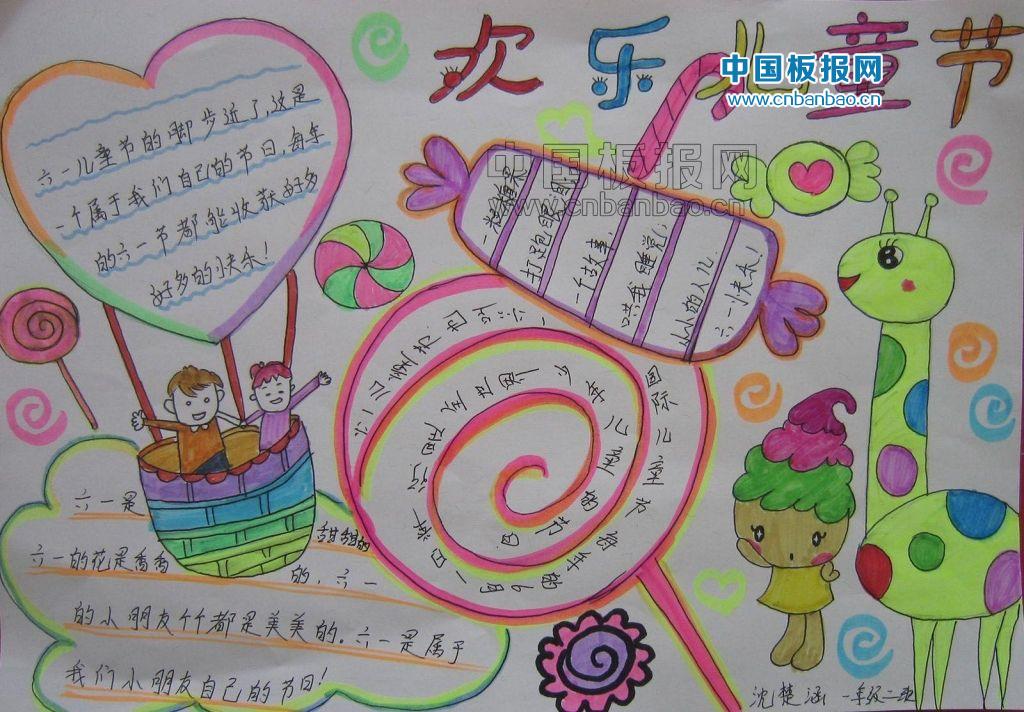 欢乐儿童节
中国板报网
www.cnbanbao.cn
中国板报网
www.cnbanbao.cn
六一儿童节的脚步近了,这是
一个属于我们自己的节日,每年
的六一节都能收获好多
好多的快乐!
一粒糖果
打跑瞌睡
一个故事,
哄我睡觉
小小的人儿,
六一快乐!
国际儿童节
每年的6月1日
儿童的节日
六一是
甜甜的
六一的花是香香的,六一
的小朋友个个都是美美的。六一是属于
我们小朋友自己的节日!
沈楚涵 一年级二班